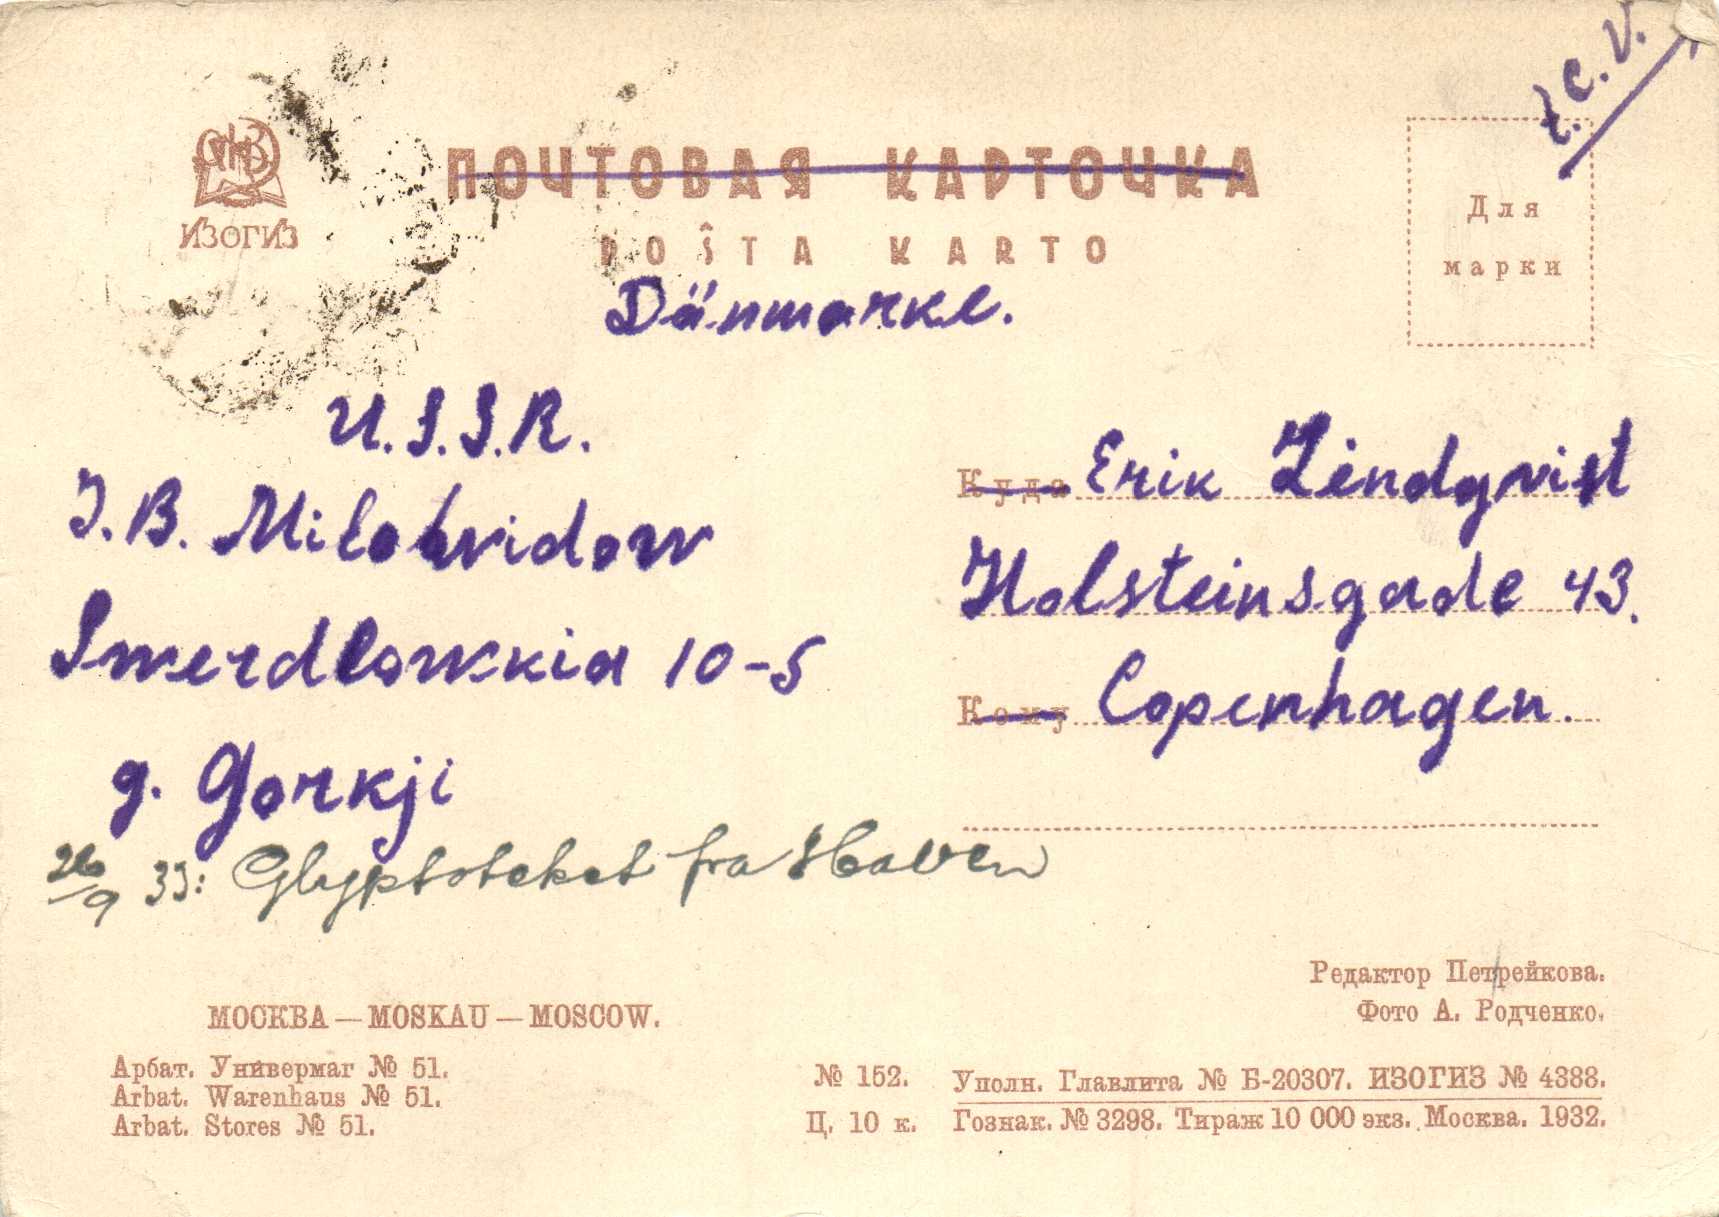 t.c.v.
ИЗОГИЗ
ПОЧТОВАЯ КАРТОЧКА
POŜTA KARTO
Для
марки
Dänmarke.
U.S.S.R.
J.B. Milobvidow
Swerdlowskia 10-5
g. Gorkji
Куда Erik Lindqvist
Holsteinsgade 43.
Кому Copenhagen.
26/9 33: Glyptoteket fra Haven
Редактор Петрейкова.
Фото А. Родченко.
МОСКВА — MOSKAU — MOSCOW.
Арбат. Универмаг № 51.
Arbat. Warenhaus № 51.
Arbat. Stores № 51.
№ 152.
Ц. 10 к.
Уполн. Главлита № Б-20307. ИЗОГИЗ № 4388.
Гознак. № 3298. Тираж 10 000 экз. Москва. 1932.